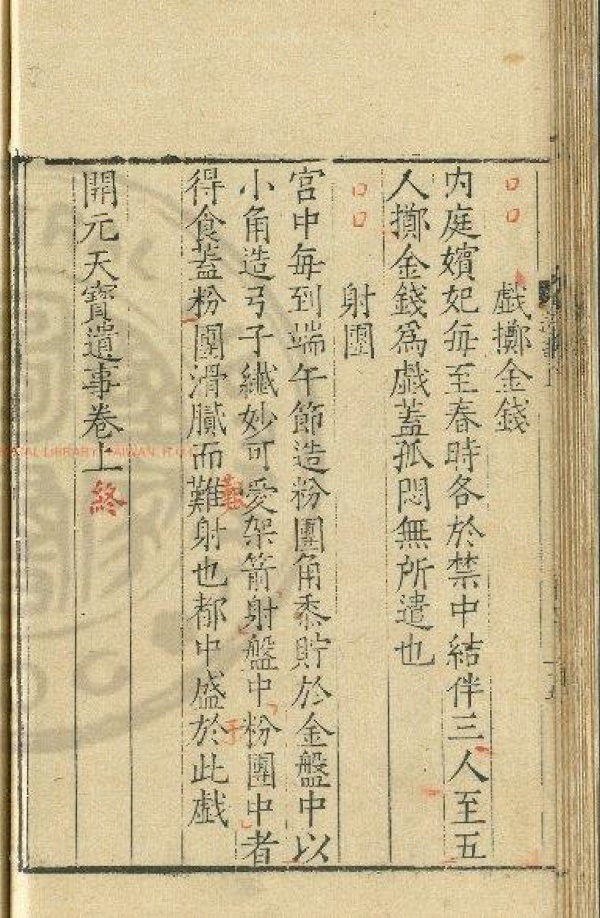 戲擲金錢
内庭嬪妃每至春時各於禁中結伴三人至五
人擲金錢爲戲蓋孤悶無所遣也
射團
宮中每到端午節造粉團角黍貯於金盤中以
小角造弓子纖妙可愛架箭射盤中粉團中者
得食蓋粉團滑膩而難射也都中盛於此戲
開元天寶遺事卷上終